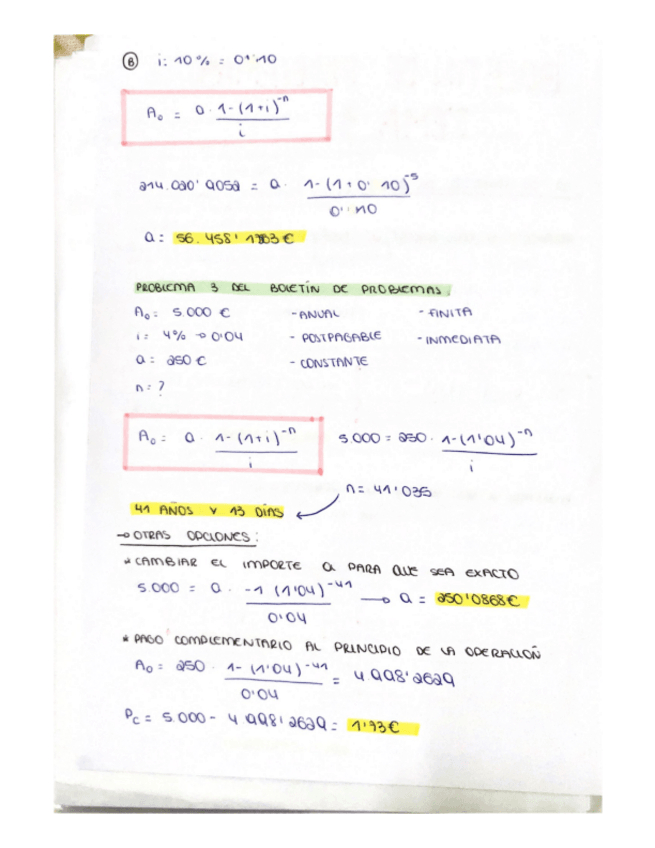 B i: 10% = 0'10
A₀ = a · 1-(1+i)⁻ⁿ / i
214.020'9052 = a · 1-(1+0'10)⁻⁵ / 0'10
a: 56.458' €
PROBLEMA 3 DEL BOLETÍN DE PROBLEMAS.
A₀: 5.000 € - ANUAL - FINITA
i: 4% → 0'04 - POSTPAGABLE - INMEDIATA
a: 250 € - CONSTANTE
n: ?
A₀: a · 1-(1+i)⁻ⁿ / i 5.000 = 250 · 1-(1'04)⁻ⁿ / i
n = 41'035
41 AÑOS Y 13 DÍAS
→ OTRAS OPCIONES:
* CAMBIAR EL IMPORTE a PARA QUE SEA EXACTO
5.000 = a · -1 (1'04)⁻⁴¹ / 0'04 → a = 250'0868€
* PAGO COMPLEMENTARIO AL PRINCIPIO DE LA OPERACIÓN
A₀ = 250 · 1-(1'04)⁻⁴¹ / 0'04 = 4998'2629
Pc = 5.000 - 4998'2629 = 1'73€